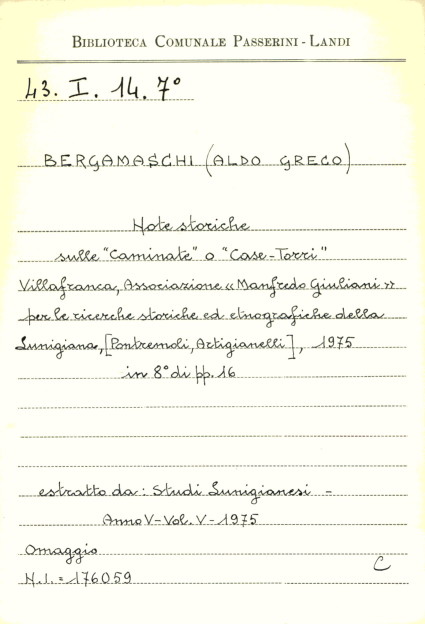 BIBLIOTECA COMUNALE PASSERINI - LANDI
43. I. 14. 7°
BERGAMASCHI (ALDO GRECO)
Note storiche
sulle "Caminate" o "Case-Torri"
Villafranca, Associazione « Manfredo Giuliani »
per le ricerche storiche ed etnografiche della
Lunigiana, [Pontremoli, Artigianelli], 1975
in 8° di pp. 16
estratto da: Studi Lunigianesi -
Anno V - Vol. V - 1975
Omaggio
N.I. = 176059
C